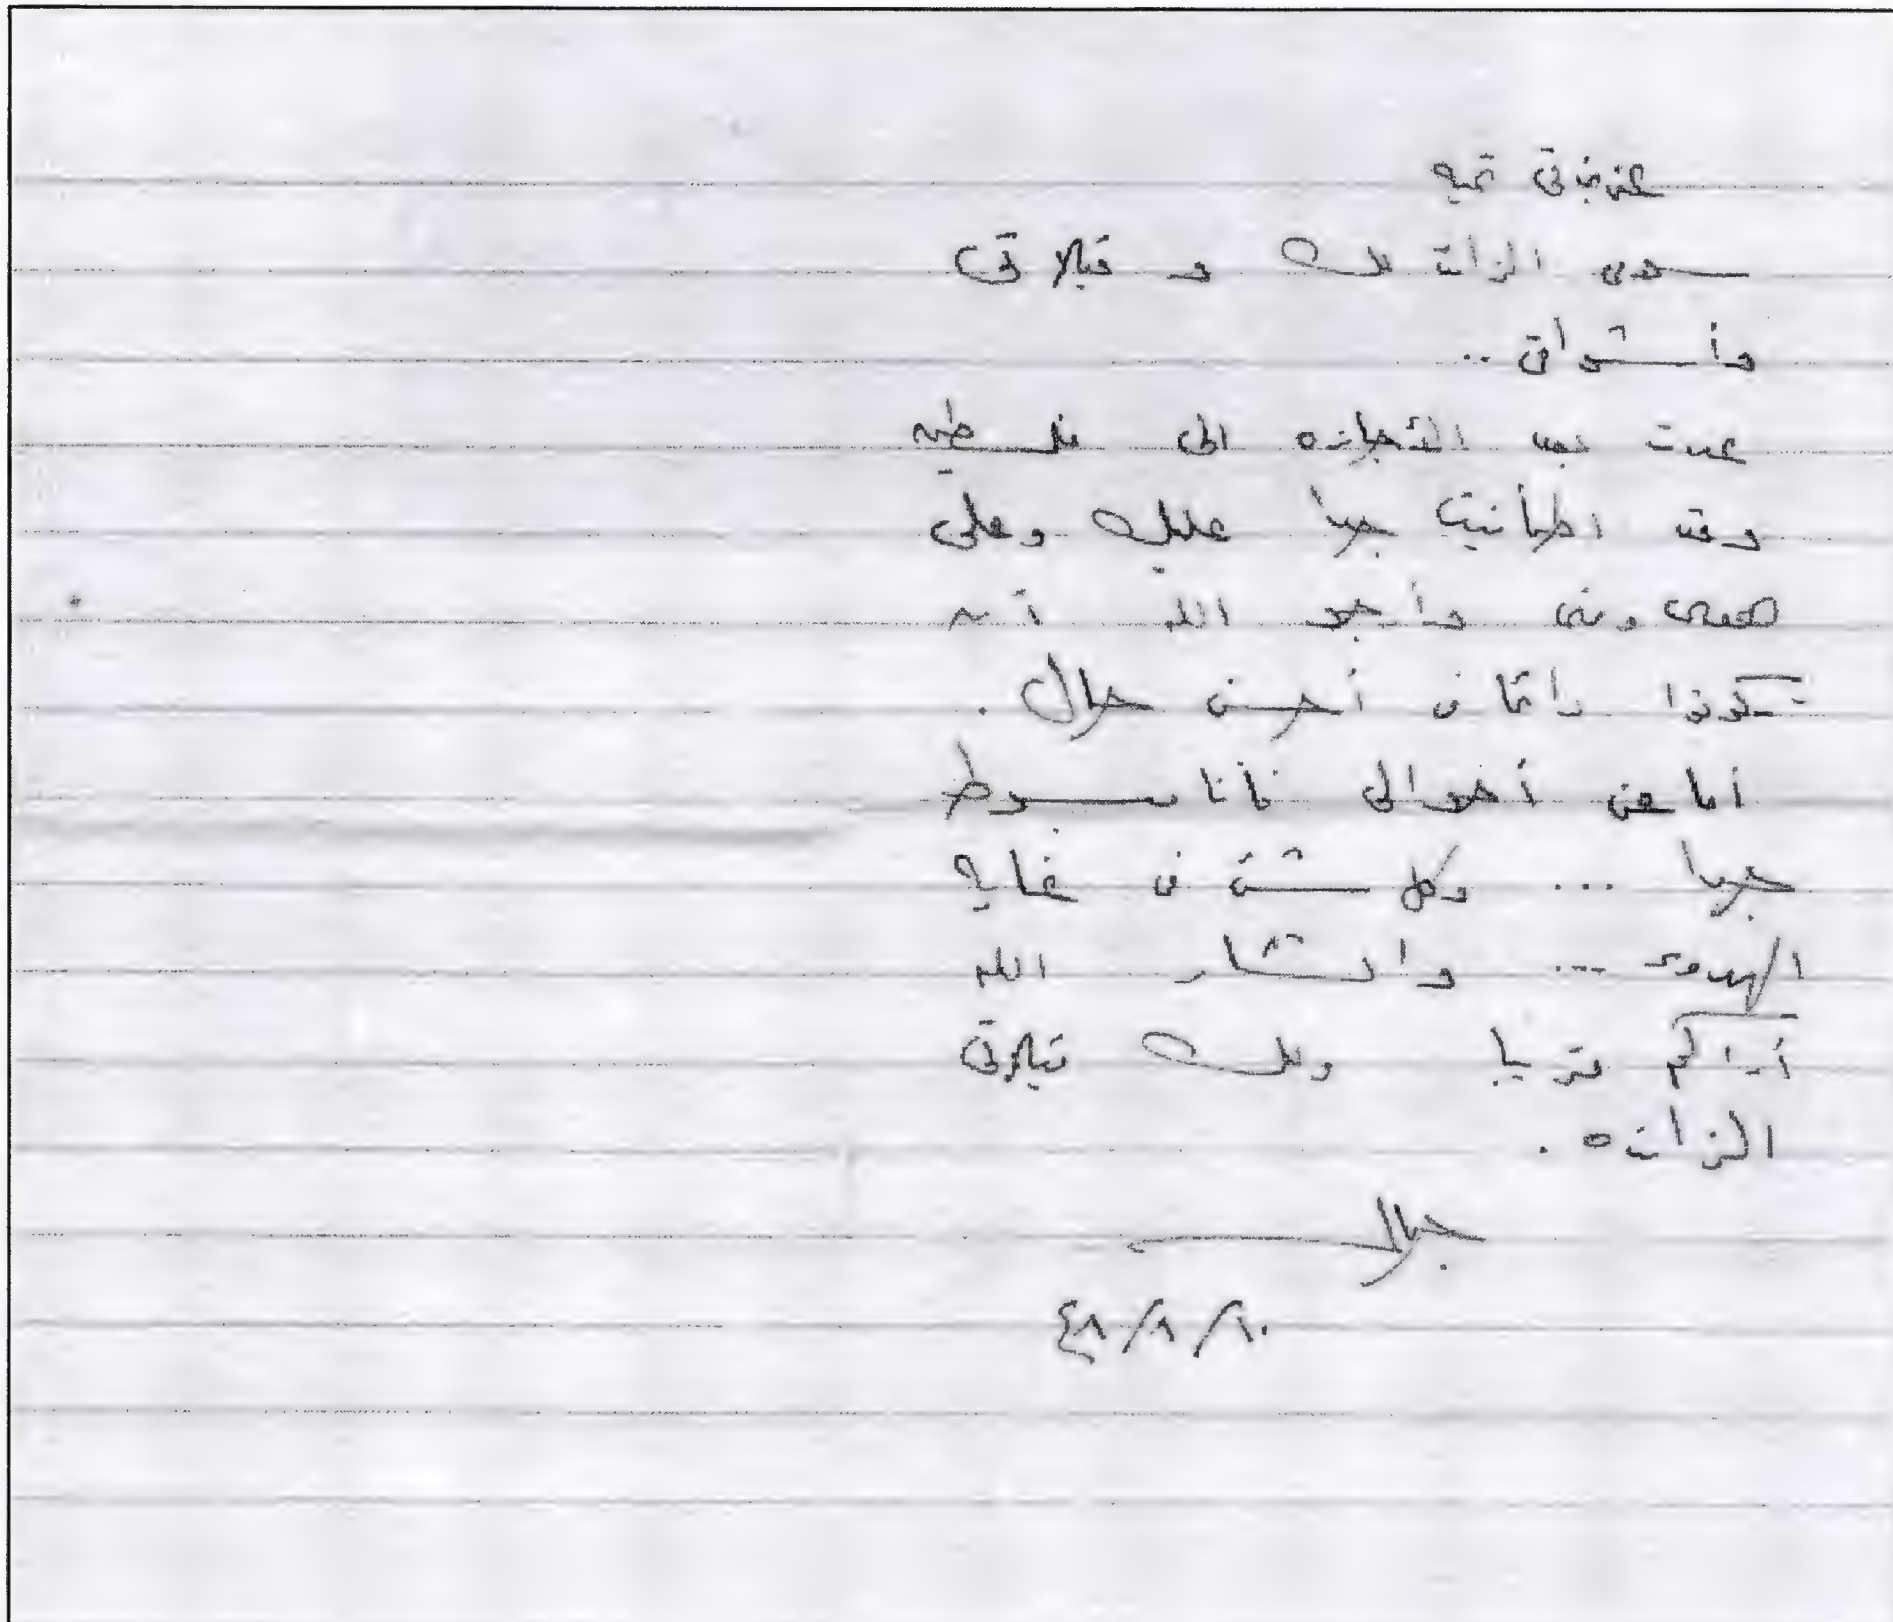 عزيزتى تحيه
سلامى الزائد لك و قبلاتى
وأشواقى ..
عدت بعد الأجازه الى فلسطين
وقد اطمأنيت جدا عليك وعلى
هدى ومنى وأرجو الله أن
تكونوا دائما فى أحسن حال .
أما عن أحوالى فأنا مبسوط
جدا ... وكل شئ فى غايه
الهدوء ... وانشاء الله
أراكم قريبا ولك قبلاتى
الزائده .
جمال